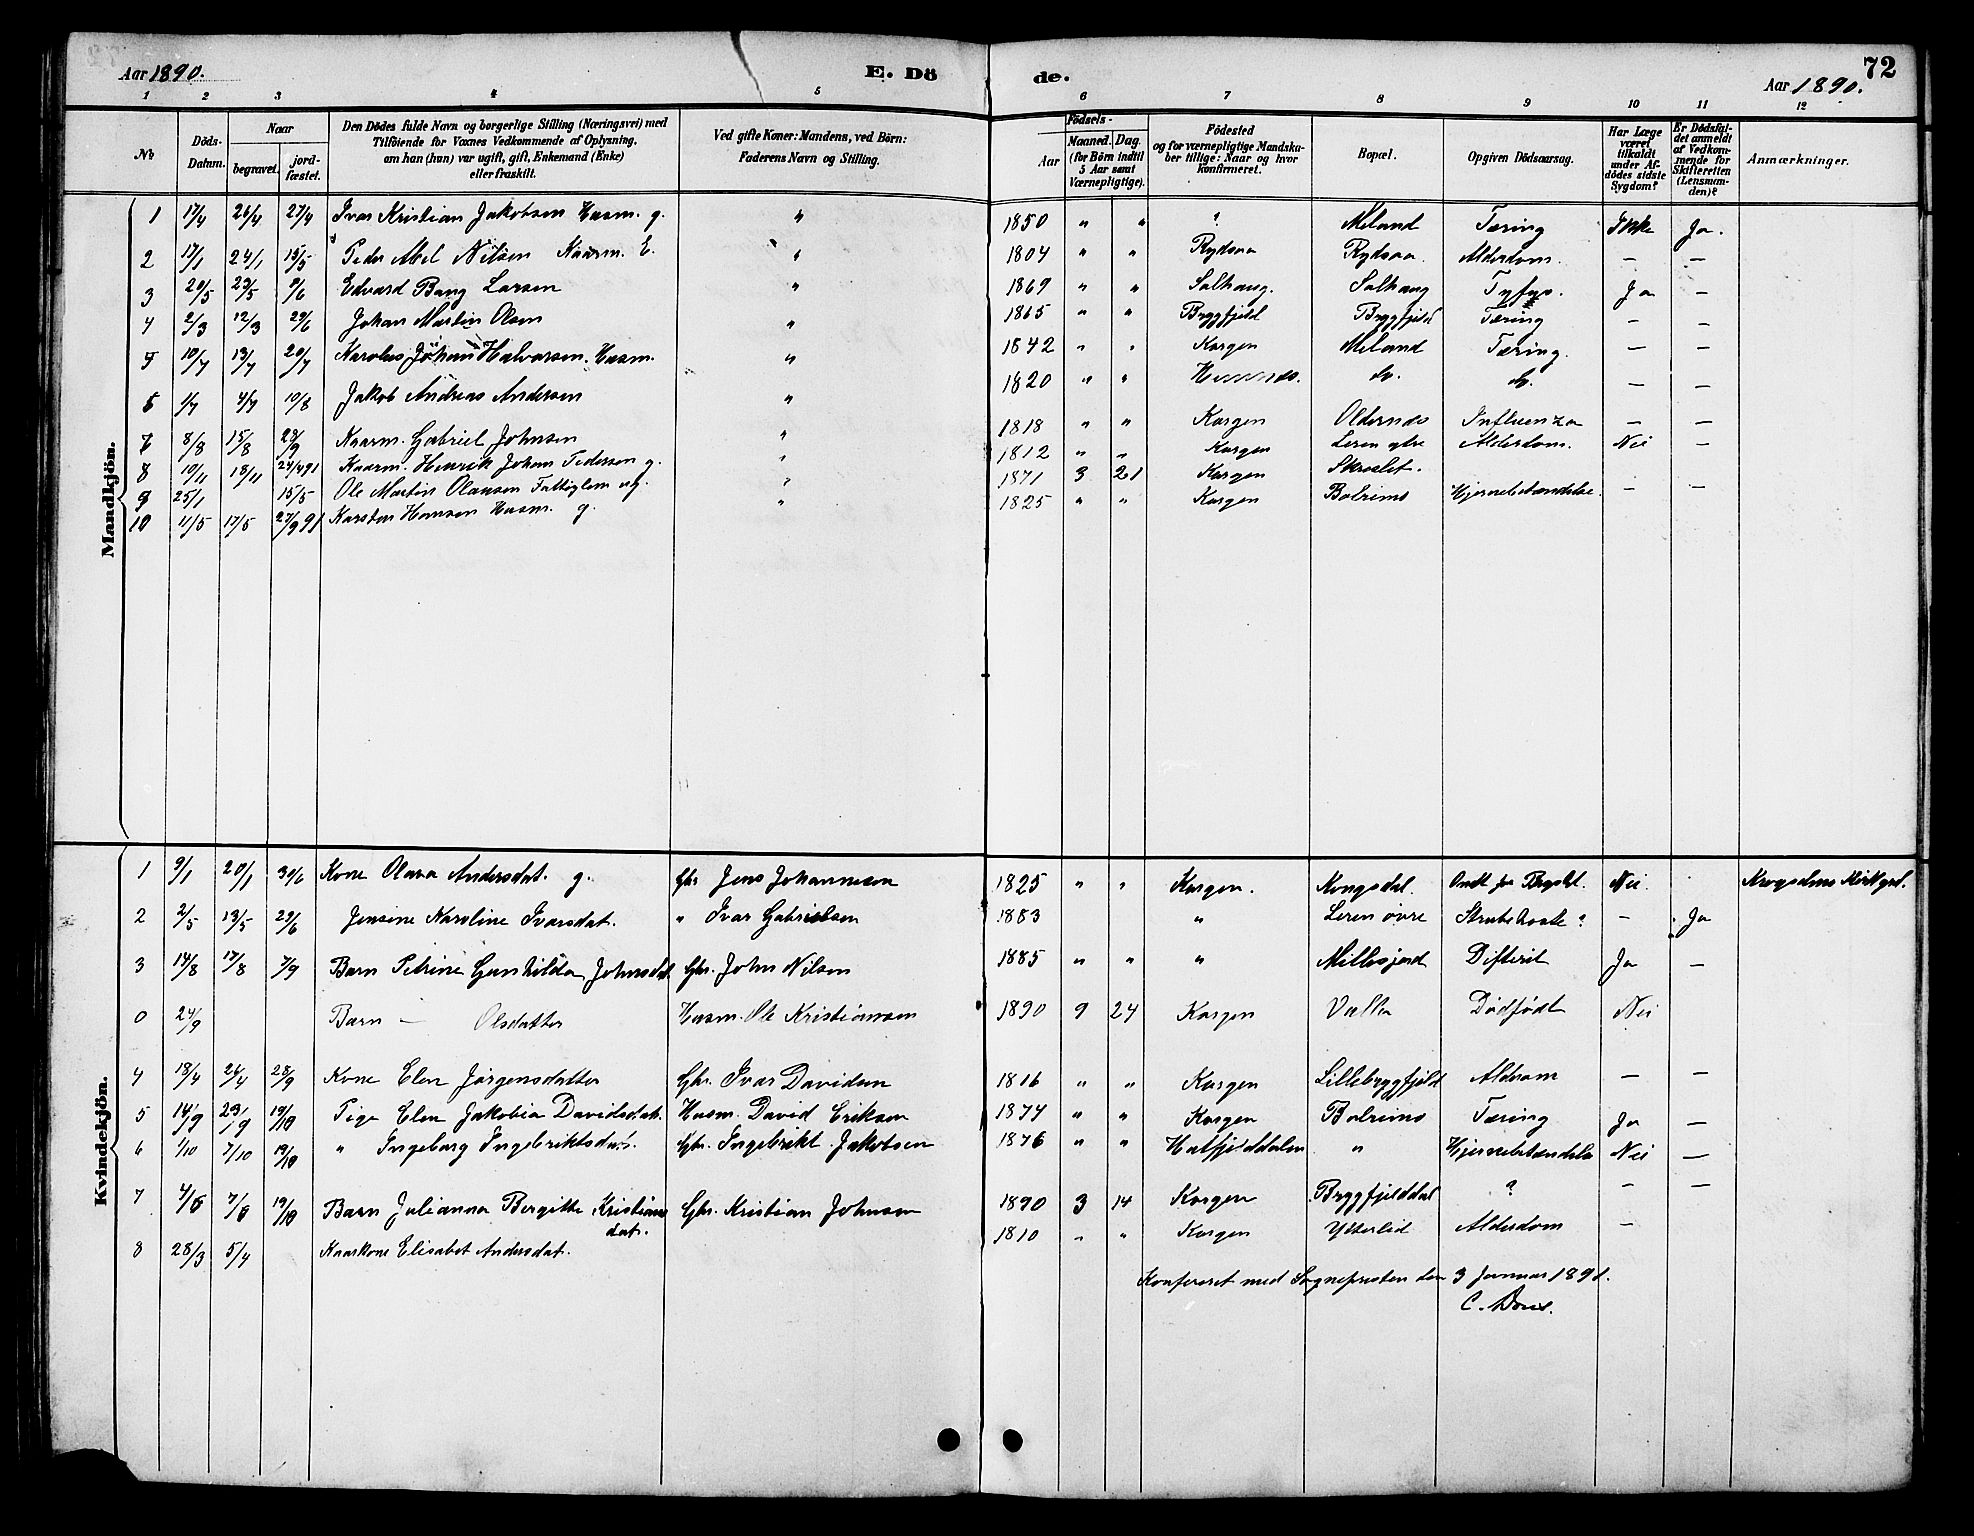 Aar 1890. E. Dö de. Aar 1890. 72
1 2 3 4 5 6 7 8 9 10 11 12
No
Döds-Datum.
Naar
begravet.
jord-fæstet.
Den Dödes fulde Navn og borgerlige Stilling (Næringsvei) med
Tilföiende for Voxnes Vedkommende af Oplysning,
om han (hun) var ugift, gift, Enkemand (Enke)
eller fraskilt.
Ved gifte Koner: Mandens, ved Börn:
Faderens Navn og Stilling.
Födsels-
Aar
Maaned. Dag
(for Börn indtil
5 Aar samt
Værnepligtige).
Födested
og for værnepligtige Mandska-
ber tillige: Naar og hvor
konfirmeret.
Bopæl.
Opgiven Dödsaarsag.
Har Læge
været
tilkaldt
under Af-
dödes sidste
Sygdom?
Er Dödsfal-
det anmeldt
af Vedkom-
mende for
Skifteretten
(Lensman-
den)?
Anmærkninger.
Mandkjön.
1 17/4 26/4 27/4 Ivar Kristian Jakobsen Husm. g. " 1850 " " ? Meland Tæring Ikke Ja.
2 17/1 24/1 15/5 Peder Abel Nilsen Kaarm. E. " 1804 " " Rydsaa Rydsaa Alderdom. — —
3 20/5 23/5 9/6 Edvard Bang Larsen " 1869 " " Solhaug. Solhaug Tyfus. Ja —
4 2/3 12/3 29/6 Johan Martin Olsen " 1865 " " Bryggfjeld Bryggfjeld Tæring — —
5 10/7 13/7 20/7 Karolus Johan Halvorsen. Husm. " 1842 " " Korgen Meland Tæring. — —
6 1/7 4/7 10/8 Jakob Andreas Andersen " 1820 " " do. do. — —
7 8/8 15/8 28/9 Kaarm. Gabriel Johnsen " 1818 " " Korgen Oldernes Influenza — —
8 10/11 18/11 24/4 91 Kaarm. Henrik Johan Pedersen g. " 1812 " " Korgen Leren ytre Alderdom. Nei —
9 25/1 15/5 Ole Martin Olausen Fattiglem ug. ? 1871 3 21 Korgen
10 11/5 17/5 27/9 91 Karsten Hansen Husm. g. " 1825 " " Korgen Bolrimo Hjernebetændelse. — —
Kvindekjön.
1 9/1 20/1 30/6 Kone Olava Andersdat. g. Gbr Jens Johannesen 1825 " " Korgen. Kongsdal. Ondt for Brystet. Nei.
2 2/5 13/5 29/6 Jensine Karoline Ivarsdat. " Ivar Gabrielsen 1883 " Leren övre Strubehoste ? — Ja
3 14/8 17/8 7/9 Barn Petrine Gunhilda Johnsdat Gbr. John Nilsen 1885 " " " Millesjord Difterit Ja —
0 24/9 Barn — Olsdatter Husm. Ole Kristiansen 1890 9 24 Korgen Valla Dödfödt Nei
4 18/4 24/4 28/9 Kone Elen Jörgensdatter Gbr. Ivar Davidsen 1816 " " Korgen Lillebryggfjeld Alderdom — —
5 14/9 23/9 19/10 Pige Elen Jakobia Davidsdat. Husm. David Eriksen 1874 " " Korgen Bolrimo Tæring Ja —
6 1/10 7/10 19/10 " Ingeborg Ingebriktsdat. Gbr. Ingebrikt Jakobsen 1876 " " Hatfjelddalen " Hjernebetændelse Nei —
7 Barn Julianna Bergitte Kristians
dat. Gbr. Kristian Johnsen 1890 3 14 Korgen Bryggfjelddal ? — —
8 28/3 5/4 Kaarkone Elisabet Andersdat. 1810 " " Korgen Ytterlid Alderdom —
Konfereret med Sognepresten den 3 Januar 1891.